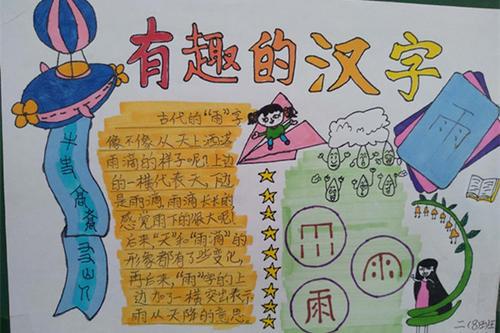 有趣的汉字
古代的“雨”字
像不像从天上洒落
雨滴的样子呢？上边
的一横代表天，下边
是雨滴，雨滴长长的
感觉雨下的很大呢！
后来“天”和“雨滴”的
形象都有了些变化，
再后来，“雨”字的上
边加了一横突出表示
雨从天降的意思
雨
雨
二（8）班